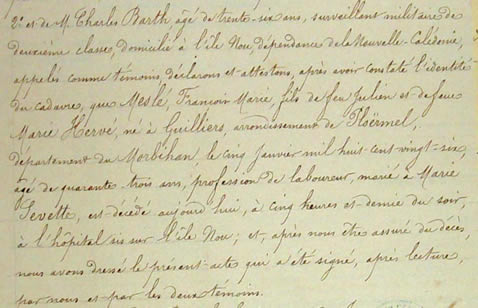 2° et de M. Charles Barth, agé de trente-six ans, surveillant militaire de
deuxième classe, domicilié à l'île Nou, dépendance de la Nouvelle-Calédonie,
appelés comme témoins, déclarons et attestons, après avoir constaté l'identité
du cadavre, que Meslé, François Marie, fils de feu Julien et de feue
Marie Hervé, né à Guilliers, arrondissement de Ploërmel,
département du Morbihan, le cinq Janvier mil huit-cent-vingt-six,
âgé de quarante-trois ans, profession de laboureur, marié à Marie
Sevette, est décédé aujourd'hui, à cinq heures et demie du soir,
à l'hôpital sis sur l'île Nou; et, après nous être assuré du décès,
nous avons dressé le présent acte qui a été signé, après lecture,
par nous et par les deux témoins.